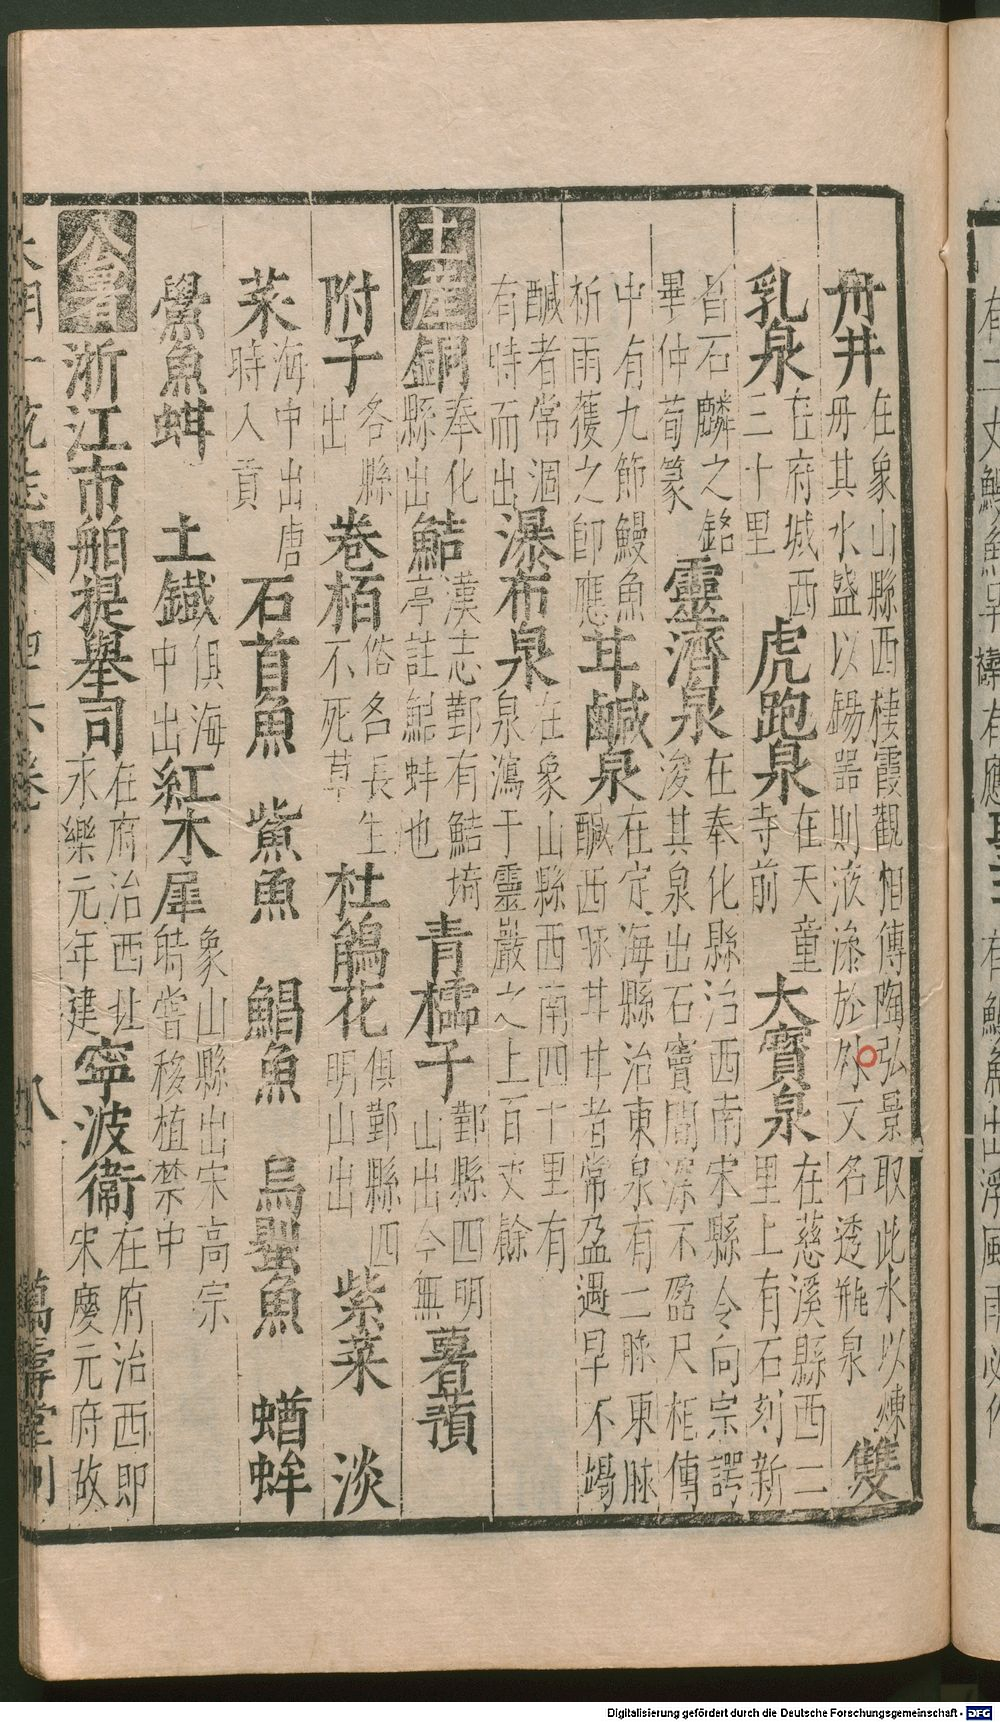 丹井在象山縣西棲霞觀相傳陶弘景取此水以煉丹其水盛以錫器則液滲於外又名透瓶泉 雙
乳泉在府城西三十里 虎跑泉在天童寺前 大寶泉在慈溪縣西二里上有石刻新
昔石麟之銘畢仲荀篆 靈濟泉在奉化縣治西南宋縣令向宗諤浚其泉出石竇間深不盈尺相傳
中有九節鰻魚祈雨獲之即應 甘鹹泉在定海縣治東泉有二脉東脉鹹西脉甘甘者常盈遇旱不竭
鹹者常涸有時而出 瀑布泉在象山縣西南四十里有泉瀉于靈巖之上百丈餘
土產 銅奉化縣出 鮚漢志鄞有鮚埼亭註鮚蚌也 青櫺子鄞縣四明山出今無 薯蕷
附子各縣出 卷栢俗名長生不死草 杜鵑花俱鄞縣四明山出 紫菜 淡
菜海中出唐時入貢 石首魚 鮆魚 鯧魚 烏鰂魚 蝤蛑
鱟魚 蚶 土鐵俱海中出 紅木犀象山縣出宋高宗時嘗移植禁中
公署 浙江市舶提舉司在府治西北永樂元年建 寧波衞在府治西即宋慶元府故
大明一統志 四十六卷 八 萬壽堂刊
Digitalisierung gefördert durch die Deutsche Forschungsgemeinschaft - DFG